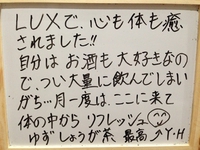 LUXで、心も体も癒
されました!!
自分はお酒も大好きなの
で、つい大量に飲んでしまい
がち…月一度は、ここに来て
体の中からリフレッシュ
ゆずしょうが茶、最高♪Y・H